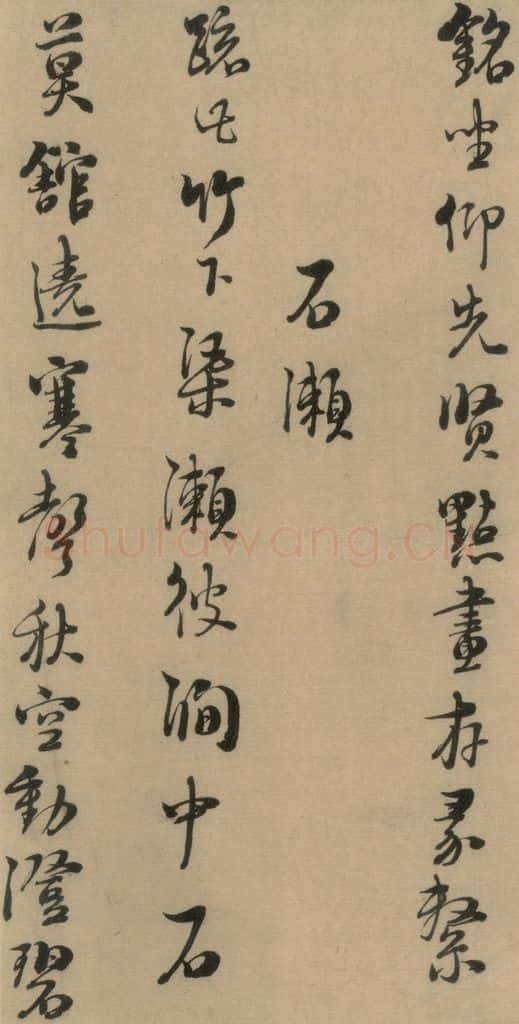 銘坐仰先賢點畫存彖繫
石瀨
疏此竹下渠瀨彼澗中石
莫舘遶寒聲秋空動澄碧
shufawang.cn